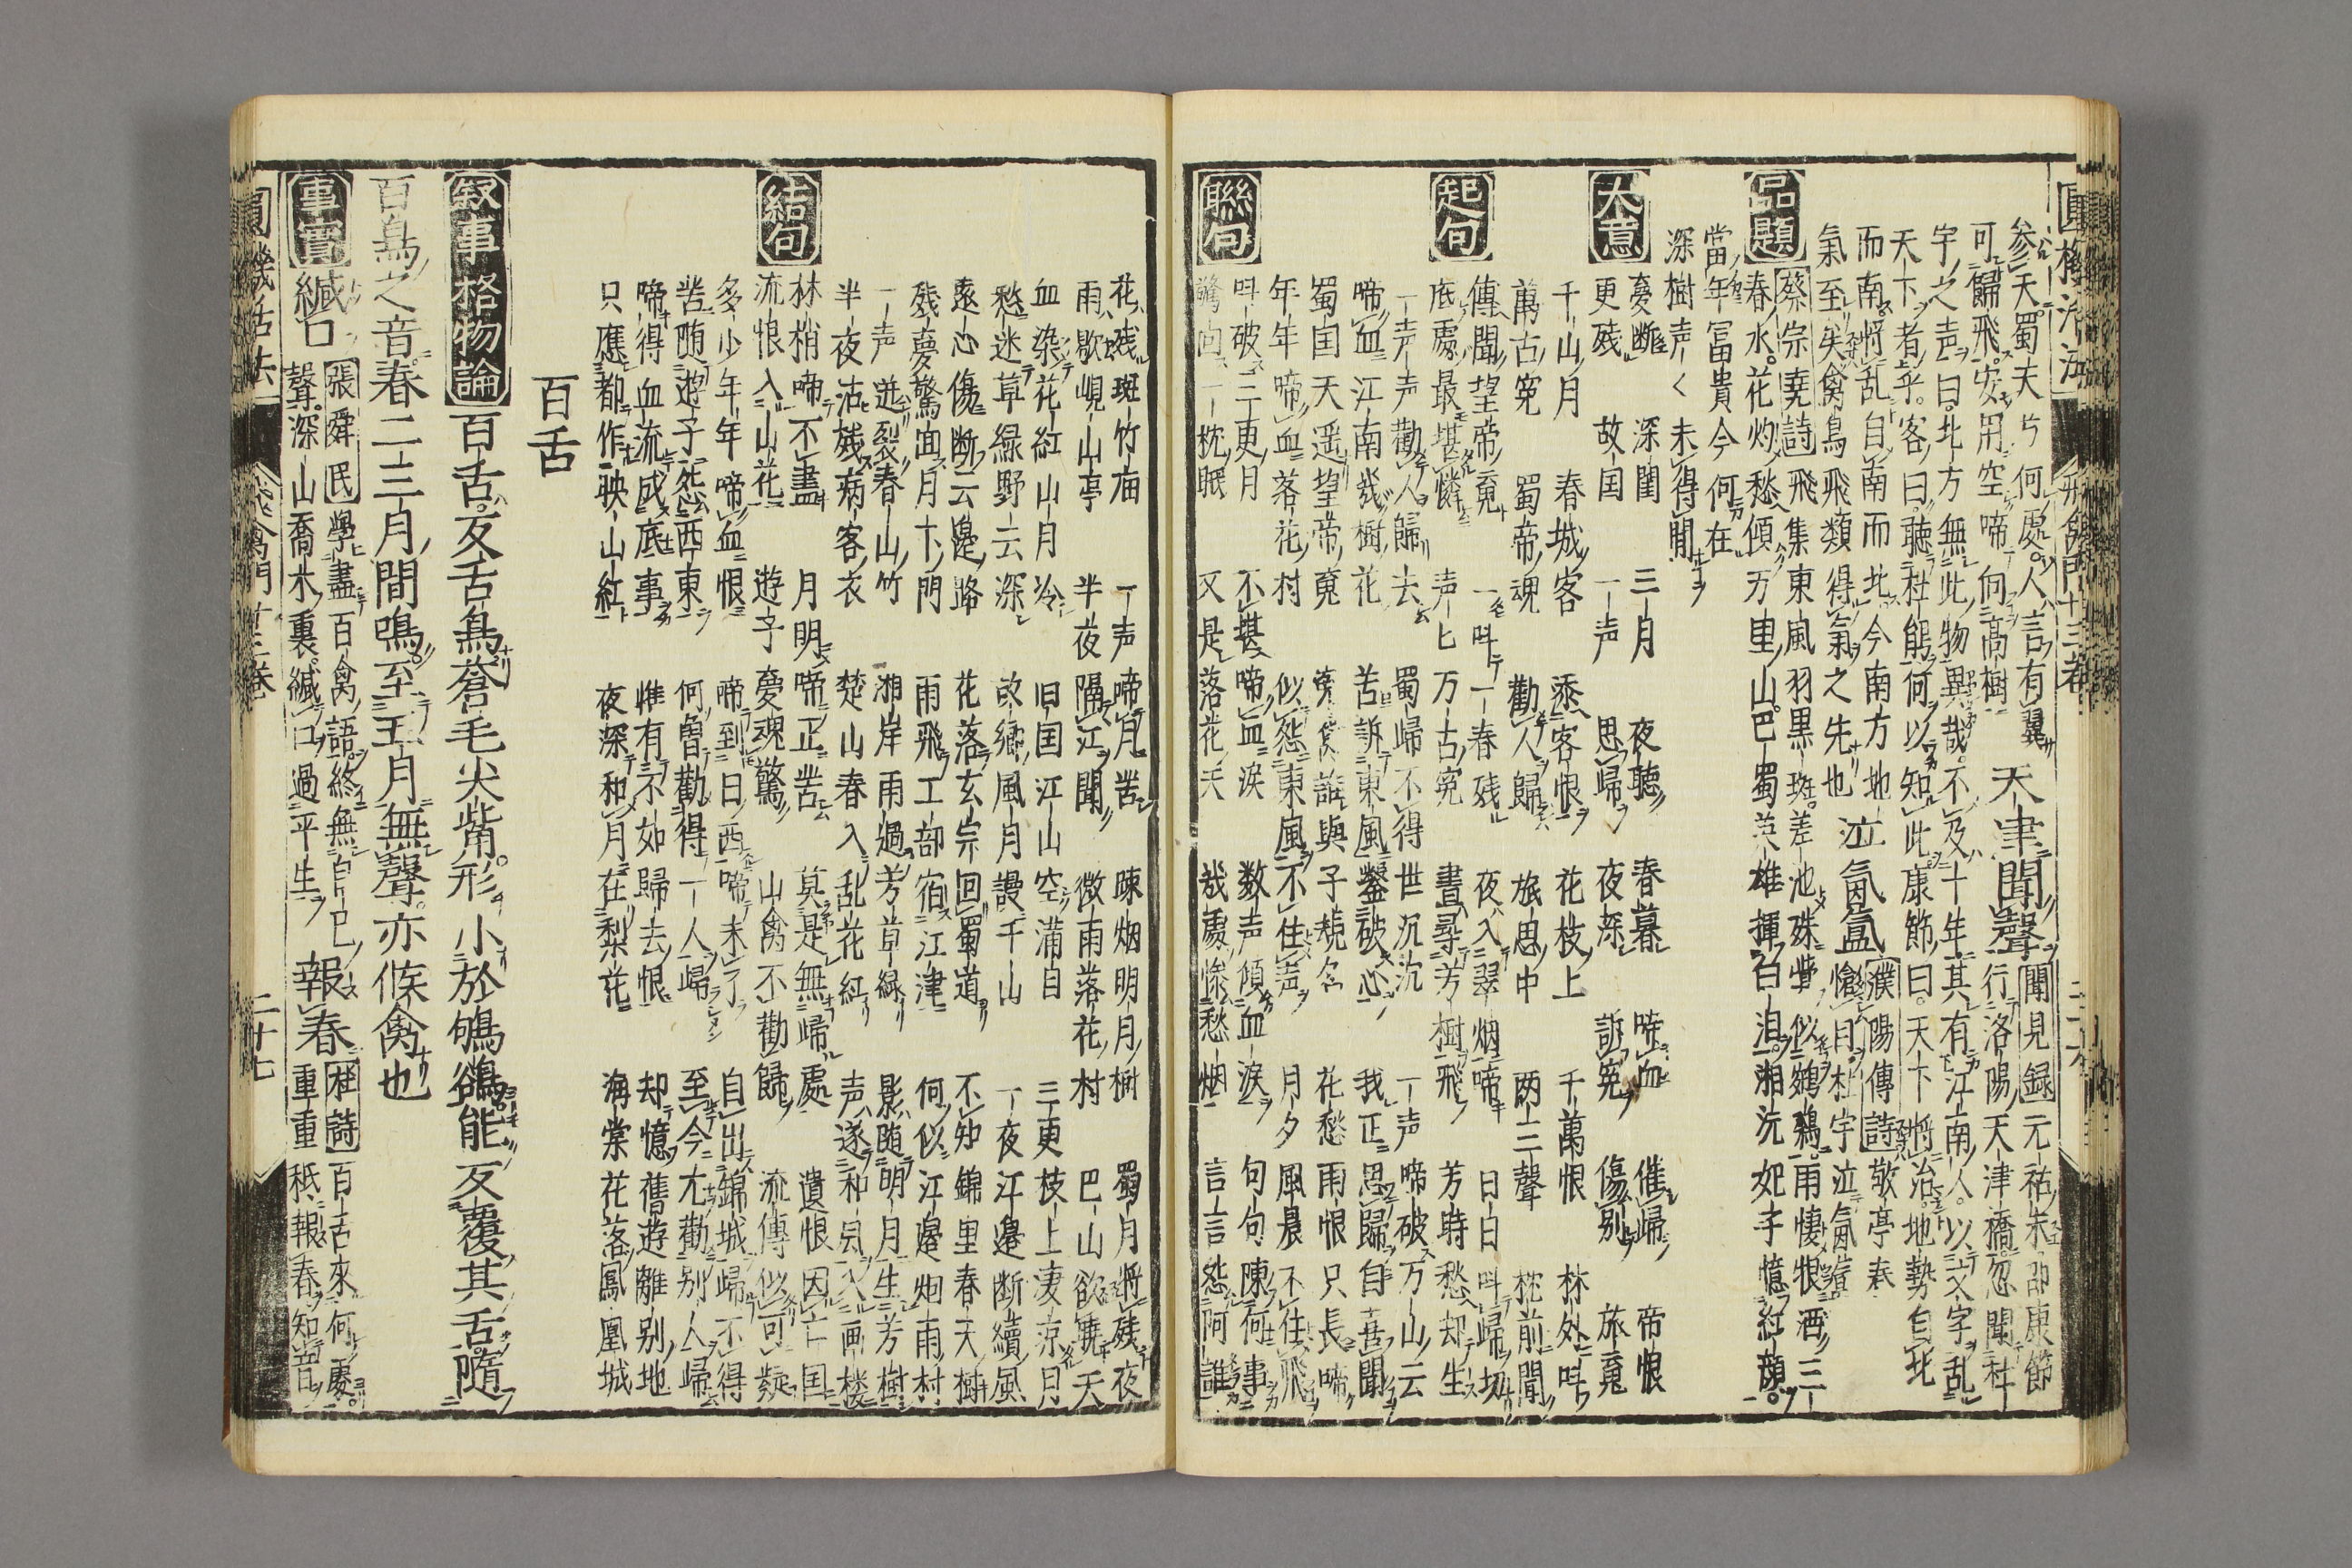 参天蜀夫兮何處人言有翼
可歸飛安用空啼向高樹
天津聞聲
聞見録元祐末邵康節
行洛陽天津橋忽聞杜
宇之声曰北方無此物異哉不及十年其有江南人以文字乱
天下者乎客曰聴杜鵑何以知此康節曰天下將治地勢自北
而南將乱自南而北今南方地
氣至矣禽鳥飛類得氣之先也
泣氤氳
濮陽傳詩敬亭春
愴目杜宇泣氤氳
品題
蔡宗堯詩飛集東風羽黒斑差池殊勢似鷄鶏雨悽恨酒三
春水花灼愁傾万里山巴蜀英雄揮白泪湘沅妃子憶紅顔
當年冨貴今何在
深樹声〱未得閒
大意
憂断 深閨 三月 夜聴 春暮 啼血 催歸 帝恨
更残 故国 一声 思歸 夜深 訴寃 傷别 旅䰟
千山月 春城客 添客恨 花枝上 千萬恨 林外叫
萬古寃 蜀帝魂 勸人歸 旅思中 两三聲 枕前聞
起句
傳聞望帝䰟 一叫一春残 夜入翠烟啼 日日叫歸切
底處最堪憐 声匕万古寃 晝尋芳樹飛 芳時愁却生
一声声勸人歸去 蜀歸不得世沉沉 一声啼破万山云
啼血江南幾樹花 苦訴東風鑿破心 我正思歸自喜聞
蜀国天遥望帝䰟 旁隻誰與子規名 花愁雨恨只長啼
年年啼血落花村 似怨東風不住声 月夕風晨不住飛
聯句
叫破三更月 不堪啼血淚 数声傾血淚 句句陳何事
驚向一枕眠 又是落花天 幾處惨愁烟 言言怨阿誰
花残斑竹庙 一声啼月苦 疎烟明月樹 蜀月將残夜
雨歇峴山亭 半夜隔江聞 微雨落花村 巴山欲曉天
血染花紅山月冷 旧国江山空满目 三更枝上凄涼月
愁迷草緑野云深 故郷風月謾千山 一夜江邉断續風
遠心傷断云邉路 花落玄宗回蜀道 不知錦里春天樹
残夢驚囬月下門 雨飛工部宿江津 何似江邉烟雨村
一声迸裂春山竹 湘岸雨過芳草緑 影随明月生芳樹
半夜沾残病客衣 楚山春入乱花紅 声逐和風入画楼
結句
林梢啼不盡 月明啼正苦 莫是無歸處 遺恨因亡国
流恨入山花 遊子夢魂驚 山禽不勸歸 流傳似可疑
多少年年啼血恨 啼到日西啼未了 自出錦城歸不得
苦随遊子怨西東 何曽勸得一人歸 至今尤勸别人歸
啼得血流成底事 惟有不如歸去恨 却憶舊遊離别地
只應都作映山紅 夜深和月在梨花 海棠花落鳳凰城
百舌
叙事
格物論
百舌反舌鳥蒼毛尖觜形小於鴝鵒能反覆其舌隨
百鳥之音春二三月間鳴至五月無聲亦候禽也
事實
緘口
張舜民學盡百禽語終無自己
聲深山喬木裏緘口過平生
報春
杜詩百舌來何處
重重秪報春知音
圓機活法 飛禽門十三巻 二十六
圓機活法 飛禽門十三巻 二十七